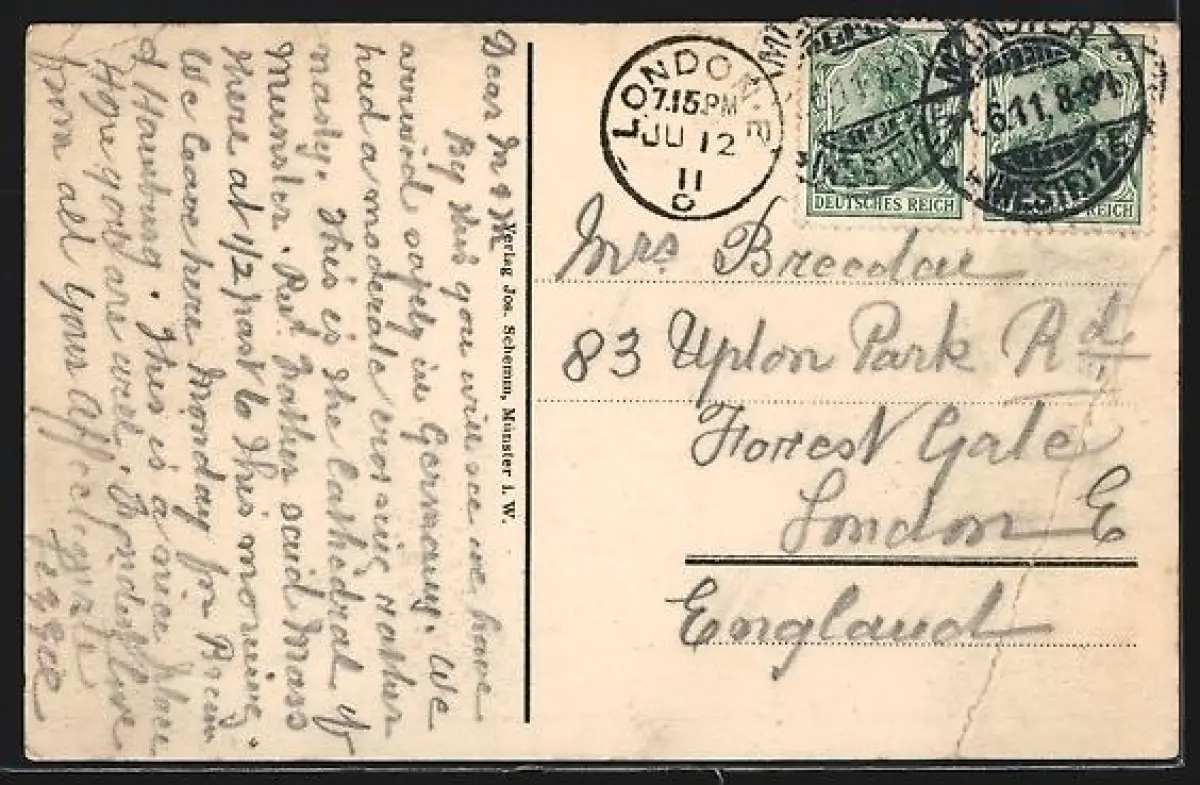 Dear M & M
By this you will see we have
arrived safely in Germany. We
had a moderate crossing rather
nasty. This is the Cathedral of
Munster. Revt Father said Mass
there at 1/2 past 6 this morning.
We leave here Monday for Brem
& Hamburg. This is a nice place
Hope you are well. Fondest love
from all Your Affec
Verlag Jos. Schemm, Münster i. W.
LONDON. E
7.15.PM
JU 12
11
DEUTSCHES REICH
MÜNSTER
6.11.8-9
(WESTF) 2
REICH
Mrs Breedae
83 Upton Park Rd.
Forrest Gate
London E
England